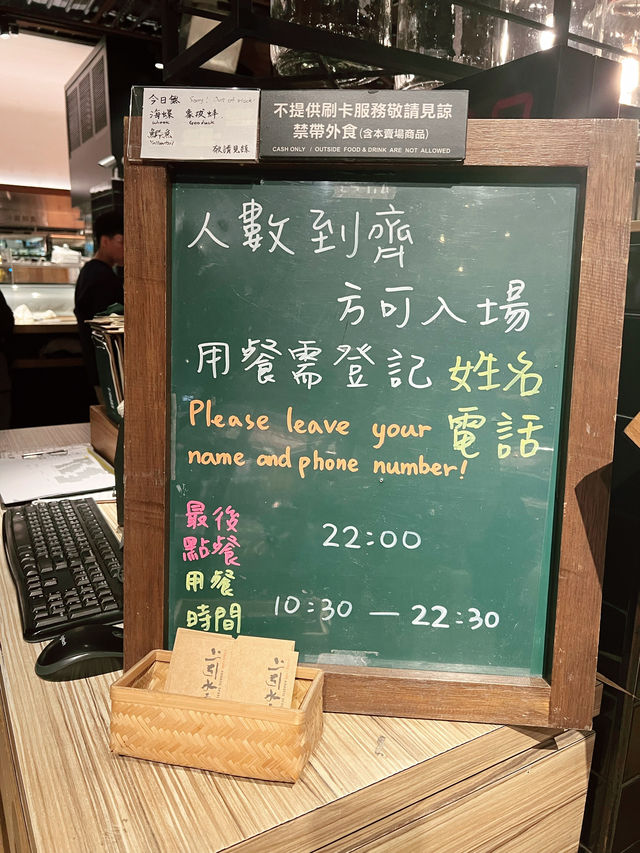 今日無 Sorry! Out of stock!
海螺 象拔蚌
Whelk Geoduck
鰤魚
Yellowtail
敬請見諒
不提供刷卡服務敬請見諒
禁帶外食(含本賣場商品)
CASH ONLY / OUTSIDE FOOD & DRINK ARE NOT ALLOWED
人數到齊
方可入場
用餐需登記 姓名
電話
Please leave your
name and phone number!
最後
點餐
22:00
用餐
時間
10:30 — 22:30
上引水
上引水